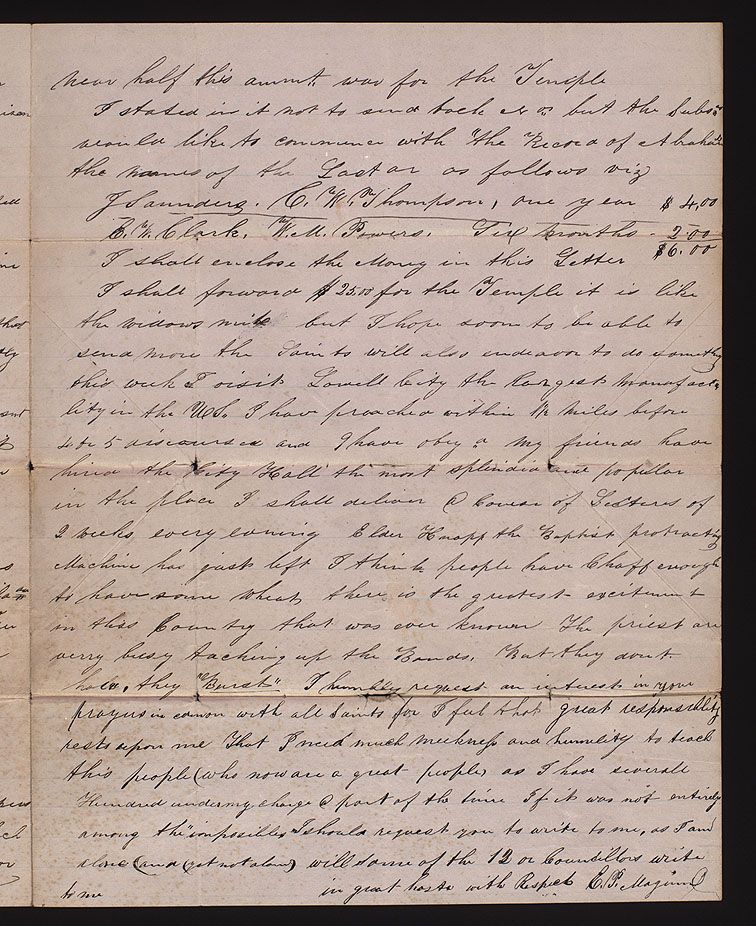 near half this ammt. was for the Temple
I stated in it not to send back no.s but the Subs
would like to commence with "the Record of Abraham"
the names of the Last are as follows viz
J Saunders. C. W. Thompson, one year $ 4,00
E. W. Clark. W.M. Powers. Six months - 2.00
$6.00
I shall enclose the Money in this Letter
I shall forward $ 25.00 for the Temple it is like
the widows mite but I hope soon to be able to
send more the Saints will also endeavor to do something
this week I visit Lowell City the largest manufact-
in the U.S. I have preached within miles before
4 or 5 discourses and I have obeyd my friends have
hired the City Hall the most splendid and popular
in the place I shall deliver a Course of Lectures of
2 weeks every evening Elder Knapp the Baptist protracting
Machine has just left I think people have Chaff enough
to have some wheat, there is the greatest excitement
in this Country that was ever known The priest are
verry busy tacking up the Bands. But they dont
hold, they "Burst" I humbly request an interest in your
prayers in common with all Saints for I feel that great responsibility
rests upon me That I need much meekness and humility to teach
this people (who now are a great people) as I have severall
Hundred under my charge a part of the time If it was not entirely
among the "imposibles I should request you to write to me, as I am
alone (and yet not alone) will some of the 12 or Councillors write
to me in great haste with Respect E. P. Maginn